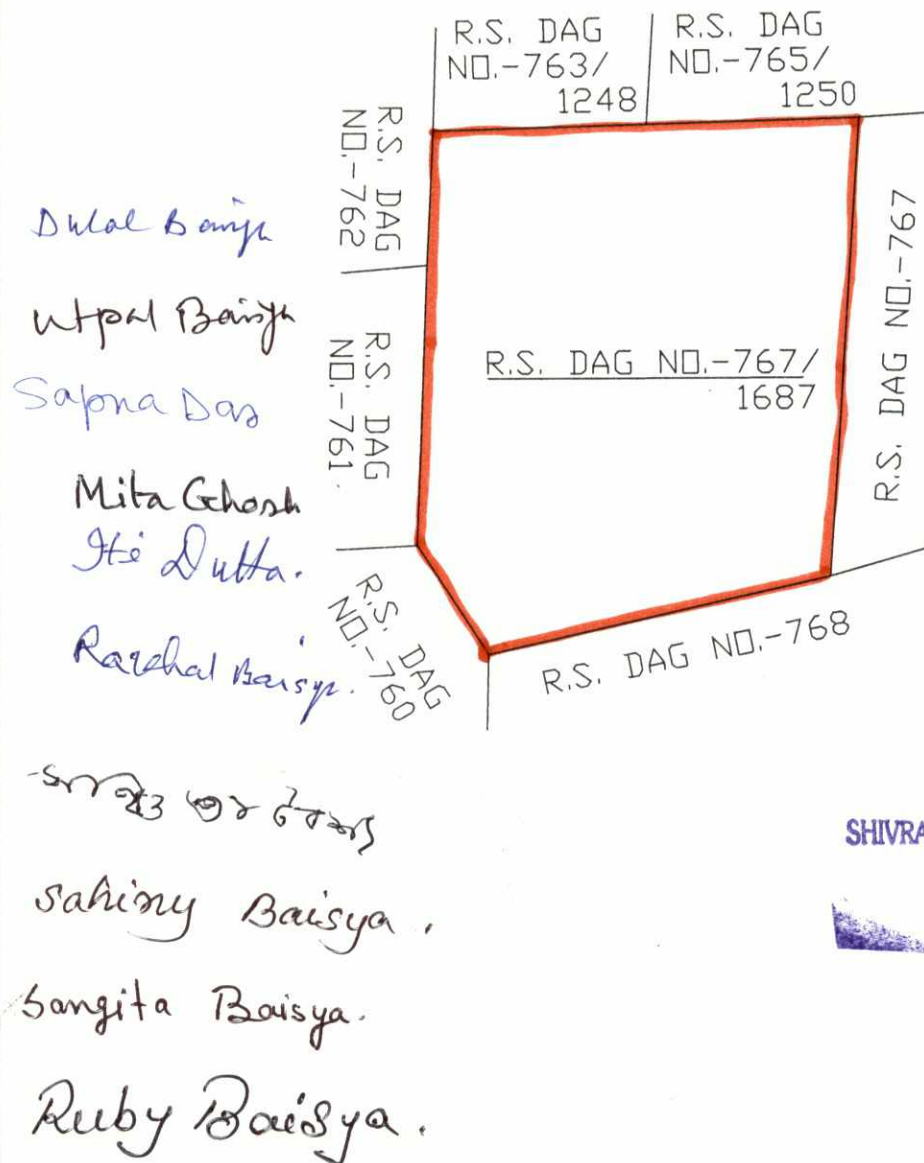 R.S. DAG
NO.-763/
1248
R.S. DAG
NO.-765/
1250
R.S. DAG
NO.-762
R.S. DAG
NO.-761.
R.S. DAG NO.-767/
1687
R.S. DAG NO.-767
R.S. DAG
NO.-760
R.S. DAG NO.-768
Dulal
Utpal Baisya
Sapna Das
Mita Ghosh
Iti Dutta.
Baisya.
Baisya.
Sangita Baisya.
Ruby Baisya.
SHIVRA